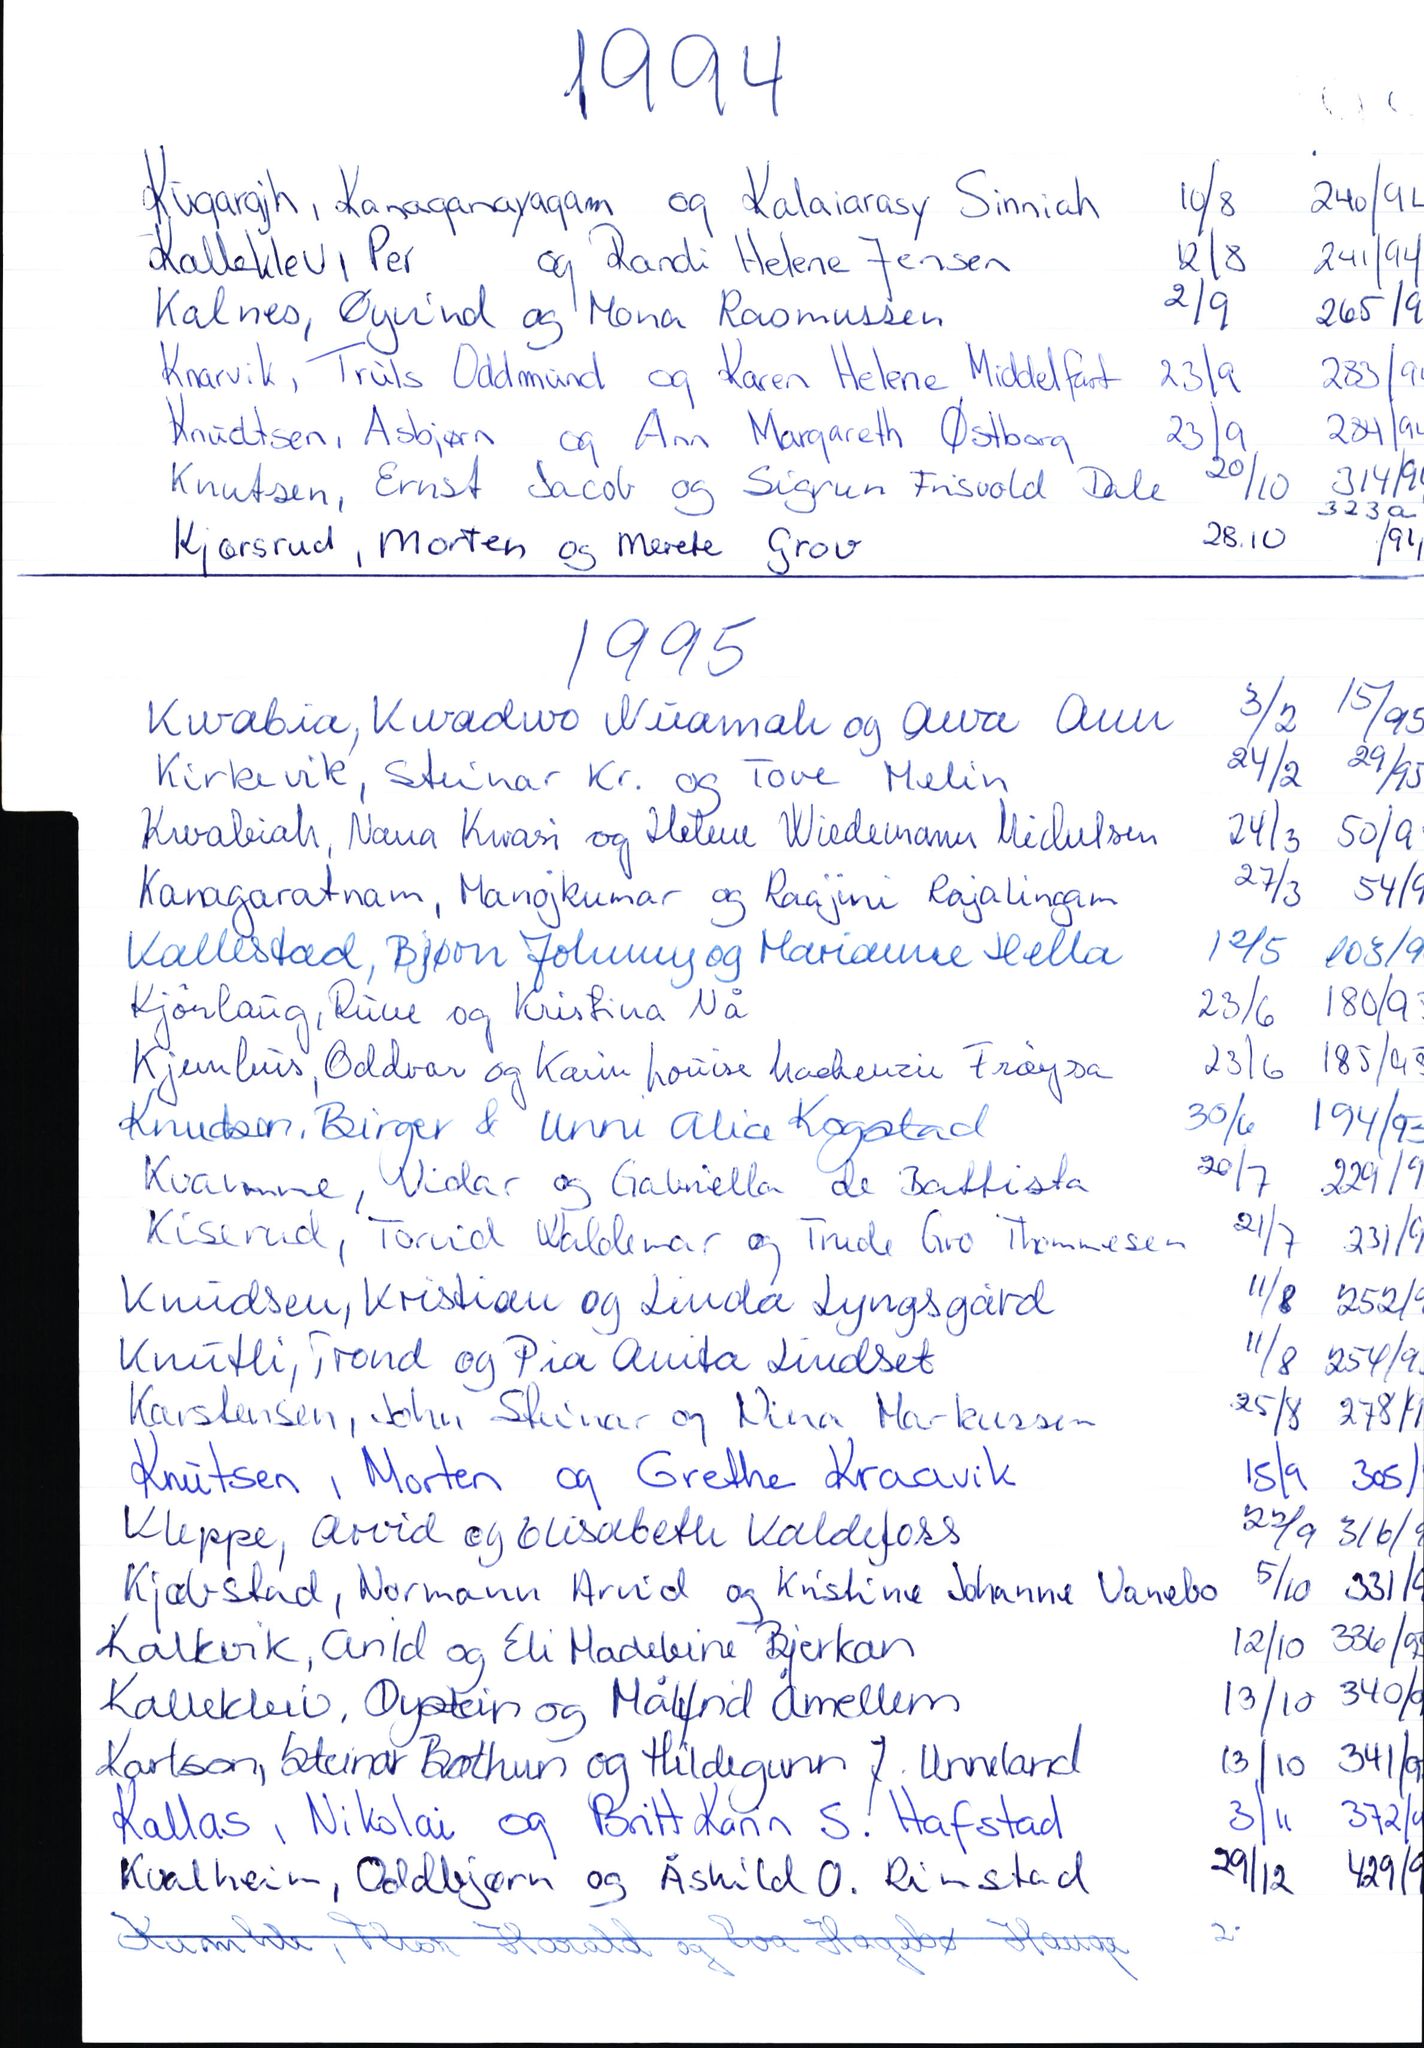 1994
Kugarajh, Kanaganayagam og Kalaiarasy Sinniah 10/8 240/94
Kalleklev, Per og Randi Helene Jensen 12/8 241/94
Kalnes, Øyvind og Mona Rasmussen 2/9 265/9
Knarvik, Truls Oddmund og Karen Helene Middelfart 23/9 283/94
Knudtsen, Asbjørn og Ann Margareth Østborg 23/9 284/94
Knutsen, Ernst Jacob og Sigrun Frisvold Dale 20/10 314/94
323a
Kjørsrud, Morten og Merete Grov 28.10 /94
1995
Kwabia, Kwadwo Nuamah og Awa Ann 3/2 15/95
Kirkevik, Steinar Kr. og Tove Melin 24/2 29/95
Kwabiah, Nana Kwasi og Helene Wiedemann Michelsen 24/3 50/9
Kanagaratnam, Manojkumar og Raajini Rajalingam 27/3 54/9
Kallestad, Bjørn Johnny og Marianne Hella 12/5 103/9
Kjörlaug, Rune og Kristina Nå 23/6 180/95
Oddvar og Karin Louise Mackenzie Frøysa 23/6 185/95
Knudsen, Birger & Unni Alice Kogstad 30/6 194/95
Kvamme, Vidar og Gabriella de Battista 20/7 229/9
Kiserud, Torvid Waldemar og Trude Gro Thommesen 21/7 231/9
Knudsen, Kristian og Linda Lyngsgård 11/8 252/9
Knutli, Trond og Pia Anita Lindset 11/8 254/9
Karstensen, John Steinar og Nina Markussen 25/8 278/9
Knutsen, Morten og Grethe Kraavik 15/9 305/
Kleppe, Arvid og Elisabeth Kaldefoss 22/9 316/9
Kjøbstad, Normann Arvid og Kristine Johanne Vanebo 5/10 331/9
Kalkvik, Arild og Eli Madeleine Bjerkan 12/10 336/95
Kallekleiv, Øystein og Målfrid Åmellem 13/10 340/9
Karlson, Steinar Bothun og Hildegunn J. Unneland 13/10 341/9
Kallas, Nikolai og Britt Karin S. Hafstad 3/11 372/9
Kvalheim, Oddbjørn og Åshild O. Rimstad 29/12 429/9
Kumble, Thor Harald og Eva Hagebø Hauge 2.